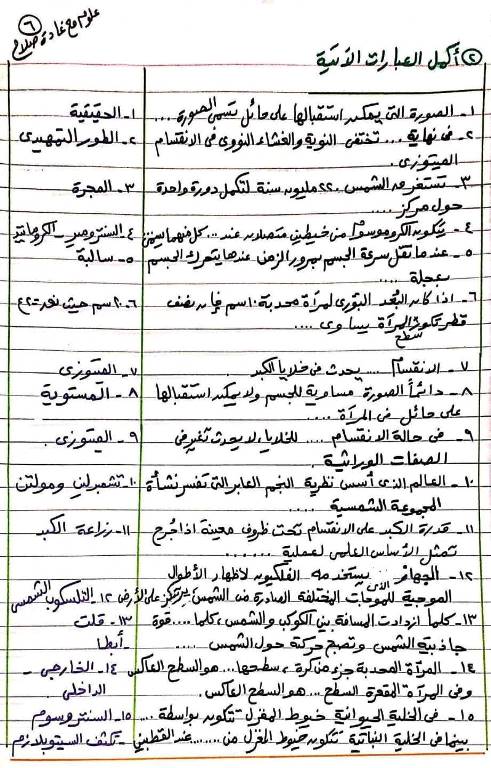 ٦
علوم مع غادة صلاح
٢ أكمل العبارات الآتية
١- الصورة التى يمكن استقبالها على حائل تسمى الصورة .... ١- الحقيقية
٢- فى نهاية .... تختفى النوية والغشاء النووى فى الانقسام ٢- الطور التمهيدى
الميتوزى.
٣- تستغرق الشمس ٢٢٠ مليون سنة لتكمل دورة واحدة ٣- المجرة
حول مركز ....
٤- يتكون الكروموسوم من خيطين متصلان عند .... كل منهما يسمى ٤- السنترومير - الكروماتيد
٥- عندما تقل سرعة الجسم بمرور الزمن عندها يتحرك الجسم ٥- سالبة
بعجلة ....
٦- اذا كان البُعد البؤرى لمرآة محدبة ١٠سم فإن نصف ٦- ٢٠سم حيث نق = ٢ع
قطر تكور سطح المرآة يساوى ....
٧- الانقسام .... يحدث فى خلايا الكبد. ٧- الميتوزى
٨- دائماً الصورة مساوية للجسم ولا يمكن استقبالها ٨- المستوية
على حائل فى المرآة ....
٩- فى حالة الانقسام .... للخلايا، لا يحدث تغير فى ٩- الميتوزى.
الصفات الوراثية.
١٠- العالم الذى أسس نظرية النجم العابر التى تفسر نشأة ١٠- تشمبرلين ومولتن
المجموعة الشمسية ....
١١- قدرة الكبد على الانقسام تحت ظروف معينة اذا جرح ١١- زراعة الكبد
تمثل الأساس العلمى لعملية ......
١٢- الجهاز الذى يستخدمه الفلكيون لاظهار الأطوال
الموجية للموجات المختلفة الصادرة من الشمس يرتكز على الأرض ١٢- التلسكوب الشمسى
١٣- كلما ازدادت المسافة بين الكوكب والشمس، كلما .... قوة ١٣- قلت
جاذبية الشمس وتصبح حركة حول الشمس .... - أبطأ
١٤- المرآة المحدبة جزء من كرة، سطحها ... هو السطح العاكس ١٤- الخارجى -
وفى المرآة المقعرة السطح ... هو السطح العاكس. الداخلى
١٥- فى الخلية الحيوانية خيوط المغزل تتكون بواسطة .... ١٥- السنتروسوم
بينما فى الخلية النباتية تتكون خيوط المغزل من ........ عند القطبين - تكثف السيتوبلازم